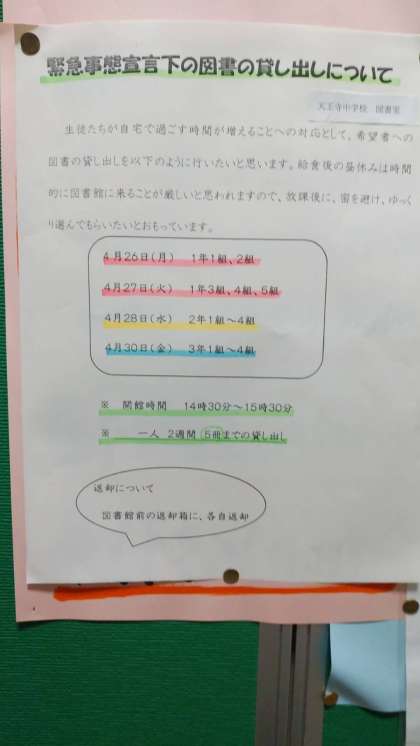 緊急事態宣言下の図書の貸し出しについて
天王寺中学校 図書室
生徒たちが自宅で過ごす時間が増えることへの対応として、希望者への
図書の貸し出しを以下のように行いたいと思います。給食後の昼休みは時間
的に図書館に来ることが厳しいと思われますので、放課後に、密を避け、ゆっく
り選んでもらいたいとおもっています。
4月26日(月) 1年1組、2組
4月27日(火) 1年3組、4組、5組
4月28日(水) 2年1組~4組
4月30日(金) 3年1組~4組
※ 開館時間 14時30分~15時30分
※ 一人 2週間 5冊までの貸し出し
返却について
図書館前の返却箱に、各自返却